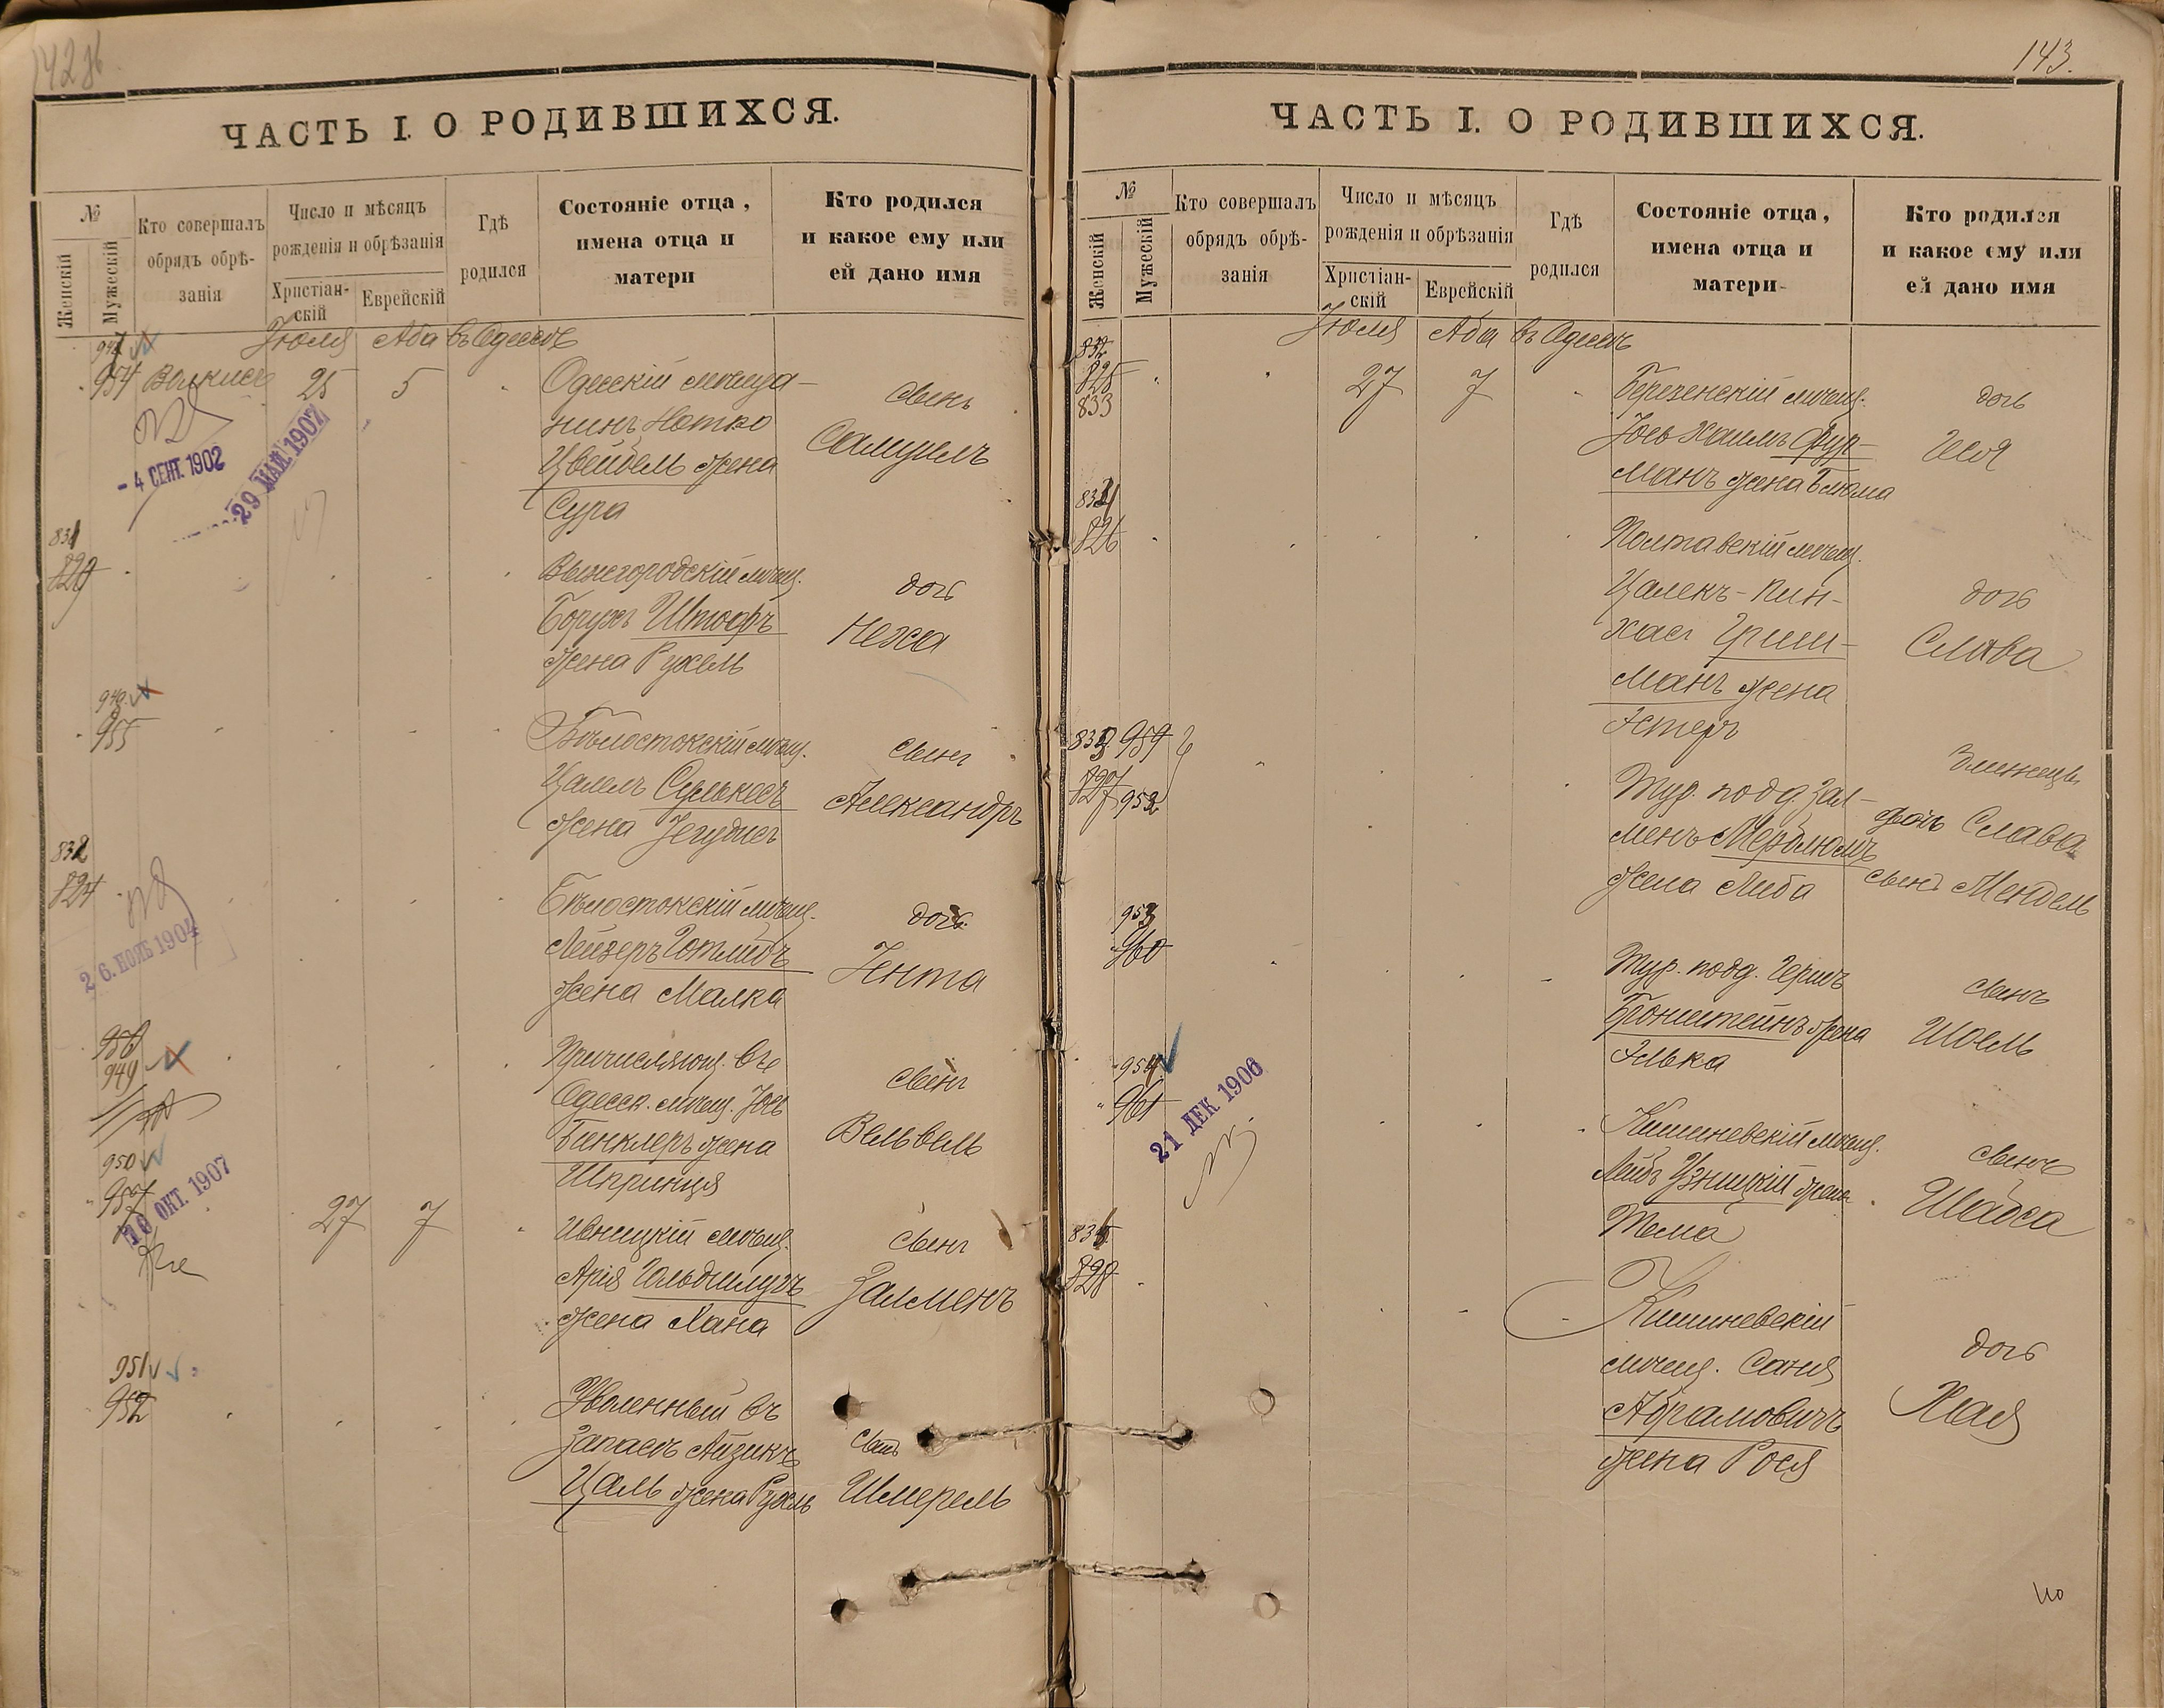 142 об.
ЧАСТЬ I. О РОДИВШИХСЯ.
№
Женскій
Мужескій
Кто совершалъ
обрядъ обрѣ-
занія
Число и мѣсяцъ
рожденія и обрѣзанія
Христіан-
скій
Еврейскій
Гдѣ
родился
Состояніе отца,
имена отца и
матери
Кто родился
и какое ему или
ей дано имя
Іюля Аба въ Одессѣ
954 25 5
Одесскій мѣща-
нинъ Нотко
Цвейбель жена
Сура
сынъ
Самуилъ
- 4 СЕНТ. 1902
29 МАЙ. 1907
831
Вышегородскій мѣщ.
Борухъ Штофъ
жена Рухель
дочь
Неха
955
Бѣлостокскій мѣщ.
Цалелъ
жена Іегудисъ
сынъ
Александръ
832
824
Бѣлостокскій мѣщ.
Лейзеръ Готлибъ
жена Малка
дочь
Іента
26. НОЯБ 1904
949
Причисляющ. въ
Одесск. мѣщ. Іось
Бинклеръ жена
Шпринця
сынъ
Вельвель
950
957 27 7
10 ОКТ. 1907
Ивницкій мѣщ.
Арія
жена Хана
сынъ
Залменъ
951
952
Уволенный въ
запасъ Айзикъ
Цаль жена Рухель
сынъ
Шмерель
143.
ЧАСТЬ I. О РОДИВШИХСЯ.
№
Женскій
Мужескій
Кто совершалъ
обрядъ обрѣ-
занія
Число и мѣсяцъ
рожденія и обрѣзанія
Христіан-
скій
Еврейскій
Гдѣ
родился
Состояніе отца,
имена отца и
матери
Кто родился
и какое ему или
ей дано имя
Іюля Аба въ Одессѣ
825
833 27 7
Березенскій мѣщ.
Іось Хаимъ Фур-
манъ жена Блюма
дочь
826
Полтавскій мѣщ.
Цалекъ-Пин-
хасъ Гриш-
манъ жена
Эстеръ
дочь
Слава
959
827 952
Тур. подд. Зал-
менъ
жена Либа
Близнецы
дочь Слава
сынъ Мендель
953
960
Тур. подд. Гершъ
Бронштейнъ жена
Элька
сынъ
Шоель
954
961
21 ДЕК 1906
Кишиневскій мѣщ.
Лейбъ Узницкій жена
Тема
сынъ
Шабса
828
Кишиневскій
мѣщ. Саня
Абрамовичъ
жена Рося
дочь
Хая